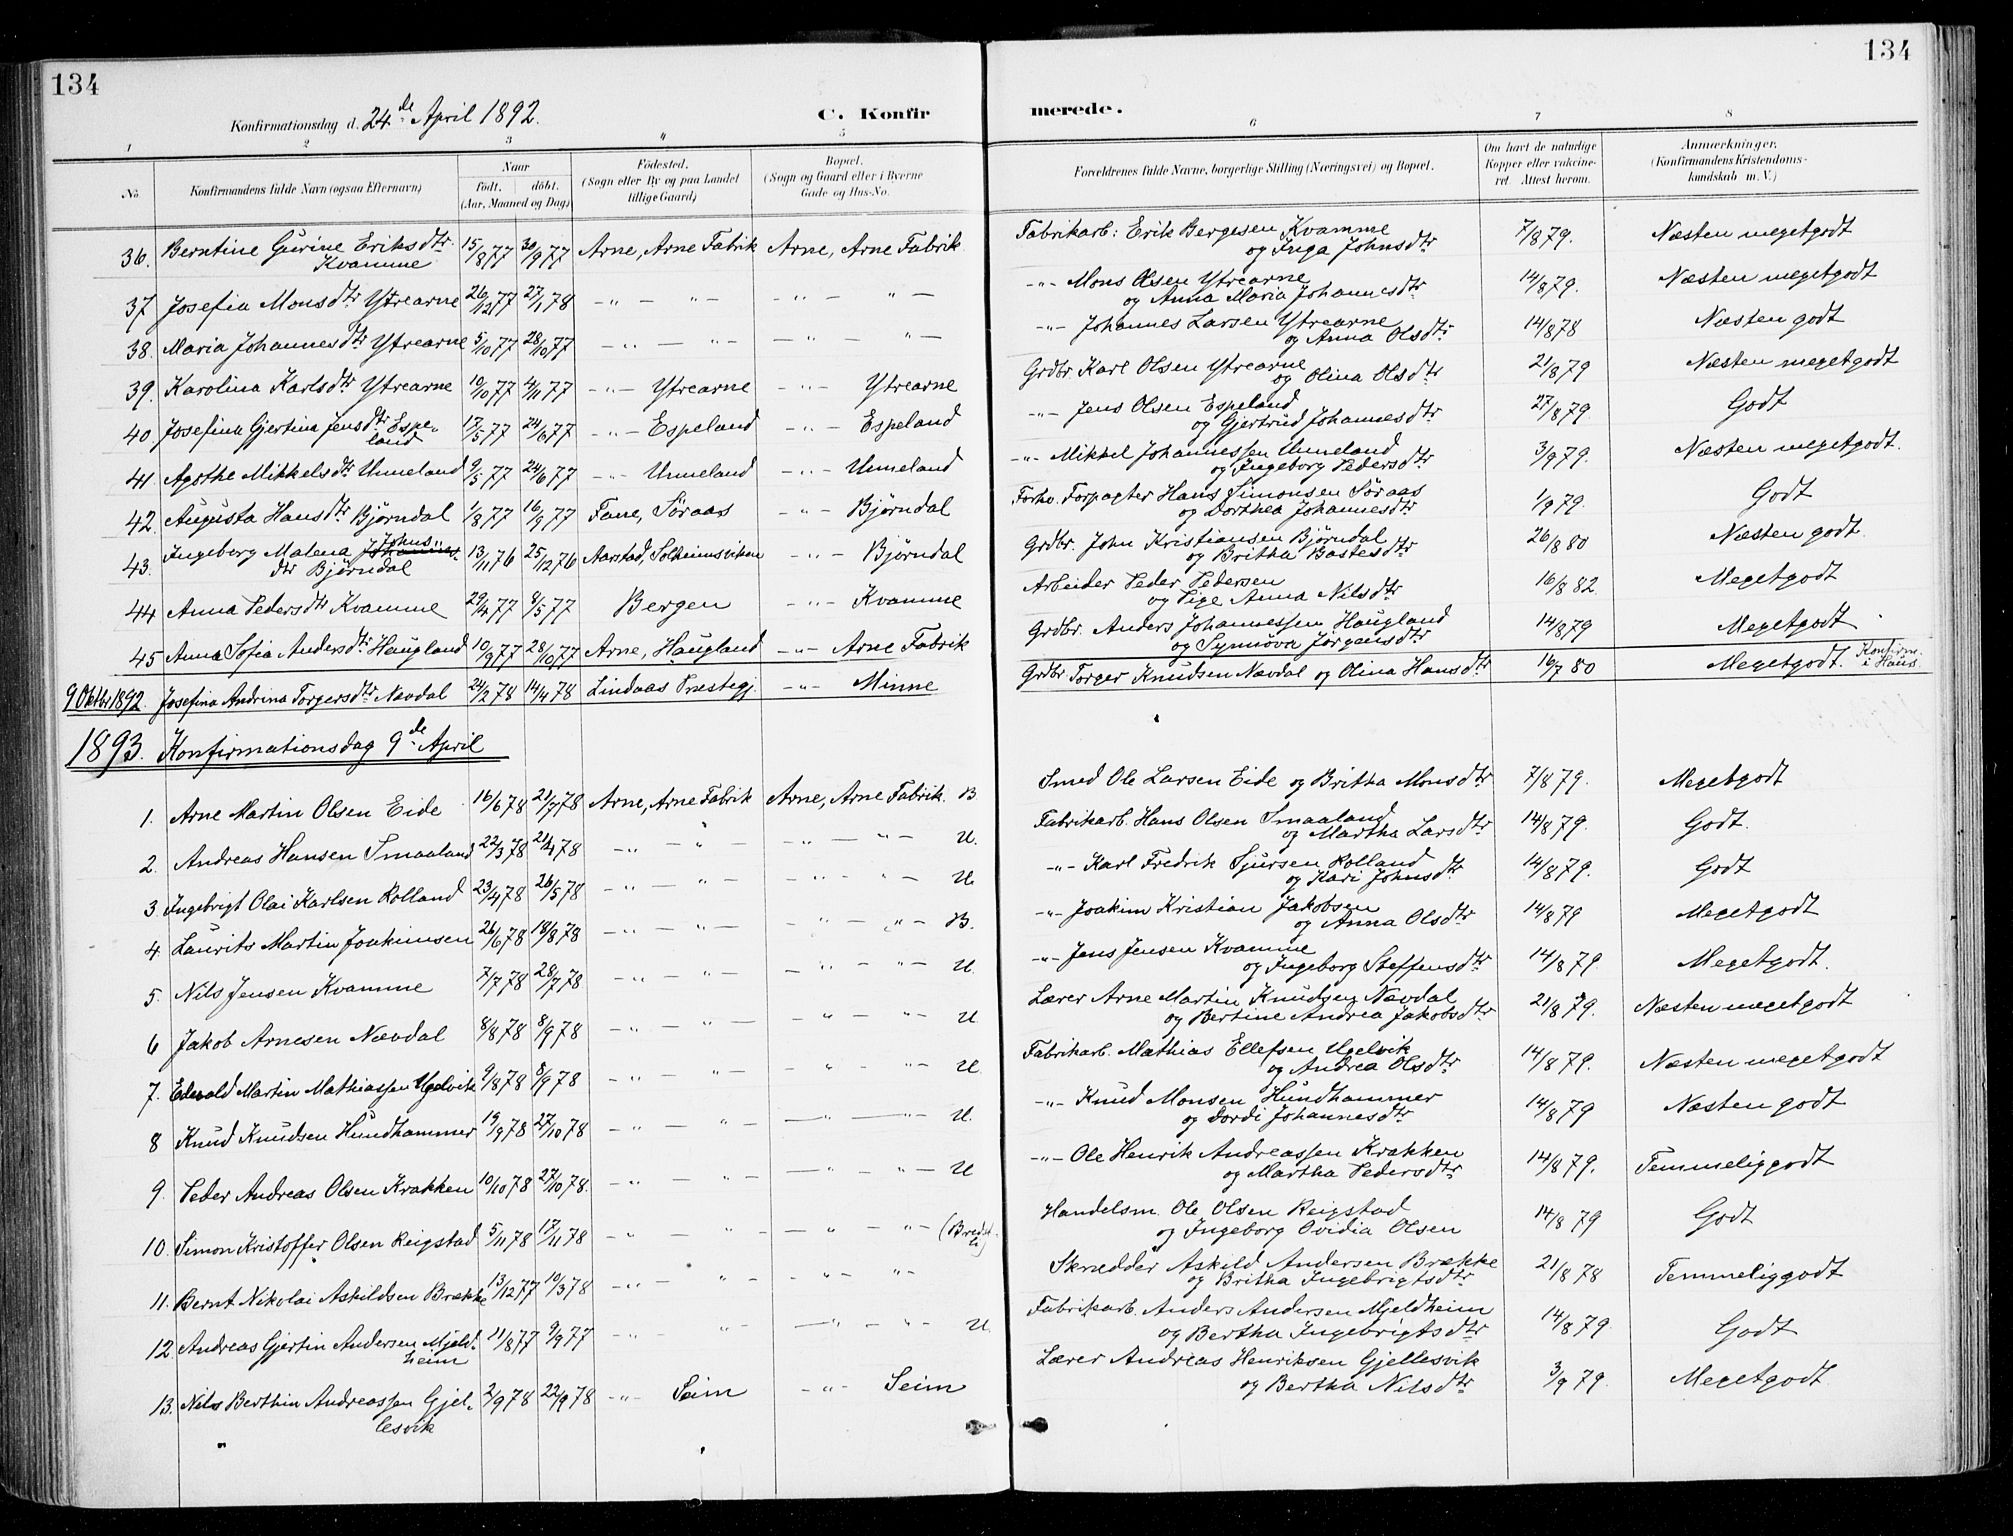 134
134
Konfirmationsdag d. 24de April 1892.
C. Konfirmerede.
1 2 3 4 5 6 7 8
No. Konfirmandens fulde Navn (ogsaa Efternavn) Naar født, døbt. (Aar, Maaned og Dag) Fødested. (Sogn eller By og paa Landet tillige Gaard) Bopæl. (Sogn og Gaard eller i Byerne Gade og Hus-No. Forældrenes fulde Navne, borgerlige Stilling (Næringsvei) og Bopæl. Om havt de naturlige Kopper eller vakcineret. Attest herom. Anmærkninger. (Konfirmandens Kristendomskundskab m. V.)
36. Berntine Gurine Eriksdtr Kvamme 15/8 77 30/9 77 Arne, Arne Fabrik Arne, Arne Fabrik Fabrikarb: Erik Bergesen Kvamme og Inga Johnsdtr 7/8 79. Næsten megetgodt
37 Josefia Monsdtr Ytrearne 26/12 77 27/1 78 -"- -"- -"- -"- -"- Mons Olsen Ytrearne og Anna Maria Johannesdtr 14/8 79. Næsten megetgodt
38. Maria Johannesdtr Ytrearne 5/10 77 28/10 77 -"- -"- -"- -"- -"- Johannes Larsen Ytrearne og Anna Olsdtr 14/8 78 Næsten godt
39. Karolina Karlsdtr Ytrearne 10/10 77 4/11 77 -"- Ytrearne -"- Ytrearne Grdbr. Karl Olsen Ytrearne og Olina Olsdtr 21/8 79 Næsten megetgodt
40. Josefina Gjertina Jensdtr Espeland 17/5 77 24/6 77 -"- Espeland -"- Espeland -"- Jens Olsen Espeland og Gjertrud Johannesdtr 27/8 79. Godt
41. Agothe Mikkelsdtr Unneland 9/5 77 24/6 77 -"- Unneland -"- Unneland -"- Mikkel Johannessen Unneland og Ingeborg Pedersdtr 3/9 79. Næsten megetgodt.
42. Augusta Hansdtr Bjørndal 1/8 77 16/9 77 Fane, Søraas -"- Bjørndal Forhv. Forpagter Hans Simonsen Søraas og Dorthea Johannesdtr 1/9 79. Godt
43. Ingeborg Malena Johannes Johnsdtr Bjørndal 13/11 76 25/12 76 Aarstad, Solheimsviken -"- Bjørndal Grdbr. John Kristiansen Bjørndal og Britha Bastesdtr 26/8 80 Næsten godt.
44 Anna Pedersdtr Kvamme 29/4 77 8/5 77 Bergen -"- Kvamme Arbeider Peder Pedersen og Pige Anna Nilsdtr 16/8 82. Megetgodt
45 Anna Sofia Andersdtr Haugland 10/9 77 28/10 77 Arne, Haugland -"- Arne Fabrik Grdbr. Anders Johannessen Haugland og Synnøva Jørgensdtr 14/8 79 Megetgodt
9 Oktbr 1892. Josefina Andrina Torgersdtr Nævdal 24/2 78 14/4 78 Lindaas Præstegj. -"- Minne Grdbr Torger Knudsen Nævdal og Olina Hansdtr 16/7 80 Megetgodt. Konfirm. i Haus.
1893. Konfirmationsdag 9de April
1. Arne Martin Olsen Eide 16/6 78 21/7 78 Arne, Arne Fabrik Arne, Arne Fabrik. B Smed Ole Larsen Eide og Britha Monsdtr 7/8 79. Megetgodt
2. Andreas Hansen Smaaland 22/3 78 21/4 78 -"- -"- -"- -"- U. Fabrikarb. Hans Olsen Smaaland og Martha Larsdtr 14/8 79. Godt.
3 Ingebrigt Olai Karlsen Rolland 23/4 78 26/5 78 -"- -"- -"- -"- U. -"- Karl Fredrik Sjursen Rolland og Kari Johnsdtr 14/8 79. Godt
4 Laurits Martin Joakimsen 26/6 78 18/8 78 -"- -"- -"- -"- B. -"- Joakim Kristian Jakobsen og Anna Olsdtr 14/8 79 Megetgodt
5. Nils Jensen Kvamme 7/7 78 28/7 78 -"- -"- -"- -"- U. -"- Jens Jensen Kvamme og Ingeborg Steffensdtr 14/8 79. Megetgodt.
6 Jakob Arnesen Nævdal 8/8 78 8/9 78 -"- -"- -"- -"- U. Lærer Arne Martin Knudsen Nævdal og Bertine Andrea Jakobsdtr 21/8 79. Næsten megetgodt
7. Edevald Martin Mathiassen Ugelvik 9/8 78 8/9 78 -"- -"- -"- -"- U. Fabrikarb. Mathias Ellefsen Ugelvik og Andrea Olsdtr 14/8 79. Næsten megetgodt
8 Knud Knudsen Hundhammer 19/9 78 27/10 78 -"- -"- -"- -"- U. -"- Knud Monsen Hundhammer og Dordi Johannesdtr 14/8 79 Næsten godt
9. Peder Andreas Olsen Krakken 10/10 78 27/10 78. -"- -"- -"- -"- U -"- Ole Henrik Andreassen Krakken og Martha Pedersdtr 14/8 79. Temmeliggodt
10. Simon Kristoffer Olsen Reigstad 5/11 78 17/11 78 -"- -"- -"- -"- Handelsm. Ole Olsen Reigstad og Ingeborg Ovidia Olsen 14/8 79 Godt
11. Bernt Nikolai Askildsen Brække 13/12 77 10/3 78 -"- -"- -"- -"- Skrædder Askild Andersen Brække og Britha Ingebrigtsdtr 21/8 78 Temmeliggodt
12. Andreas Gjertin Andersen Mjeldheim 11/8 77 9/9 77 -"- -"- -"- -"- U. Fabrikarb. Anders Andersen Mjeldheim og Bertha Ingebrigtsdtr 14/8 79. Godt
13. Nils Berthin Andreassen Gjellesvik 2/9 78 22/9 78 -"- Seim -"- Seim Lærer Andreas Henriksen Gjellesvik og Bertha Nilsdtr 3/9 79. Megetgodt.